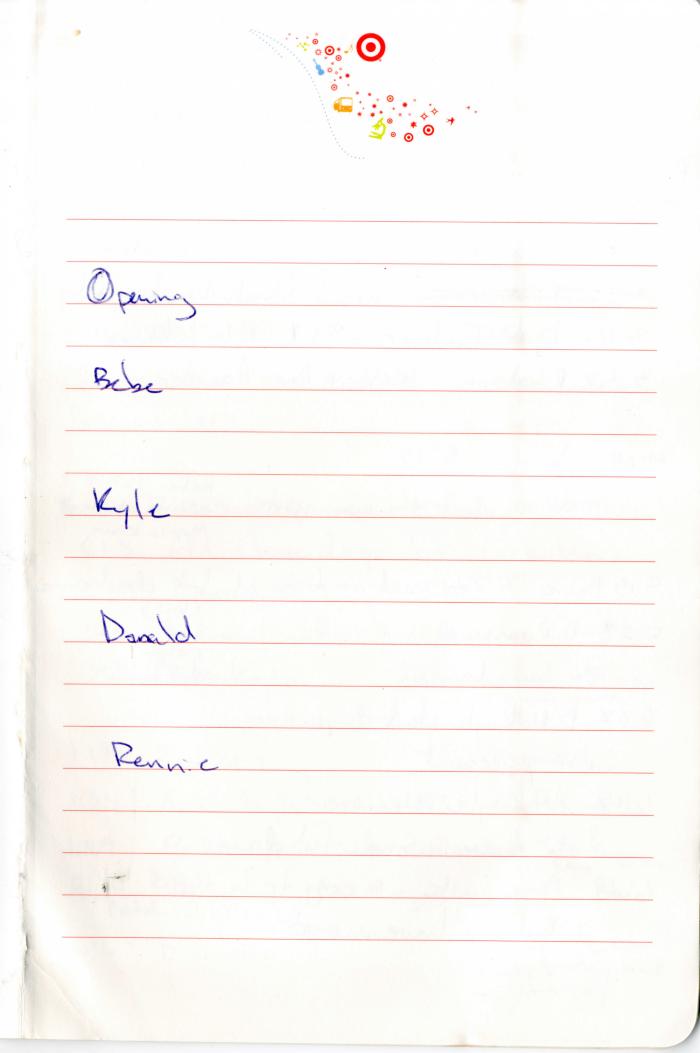 Opening
Bebe
Kyle
Donald
Rennie